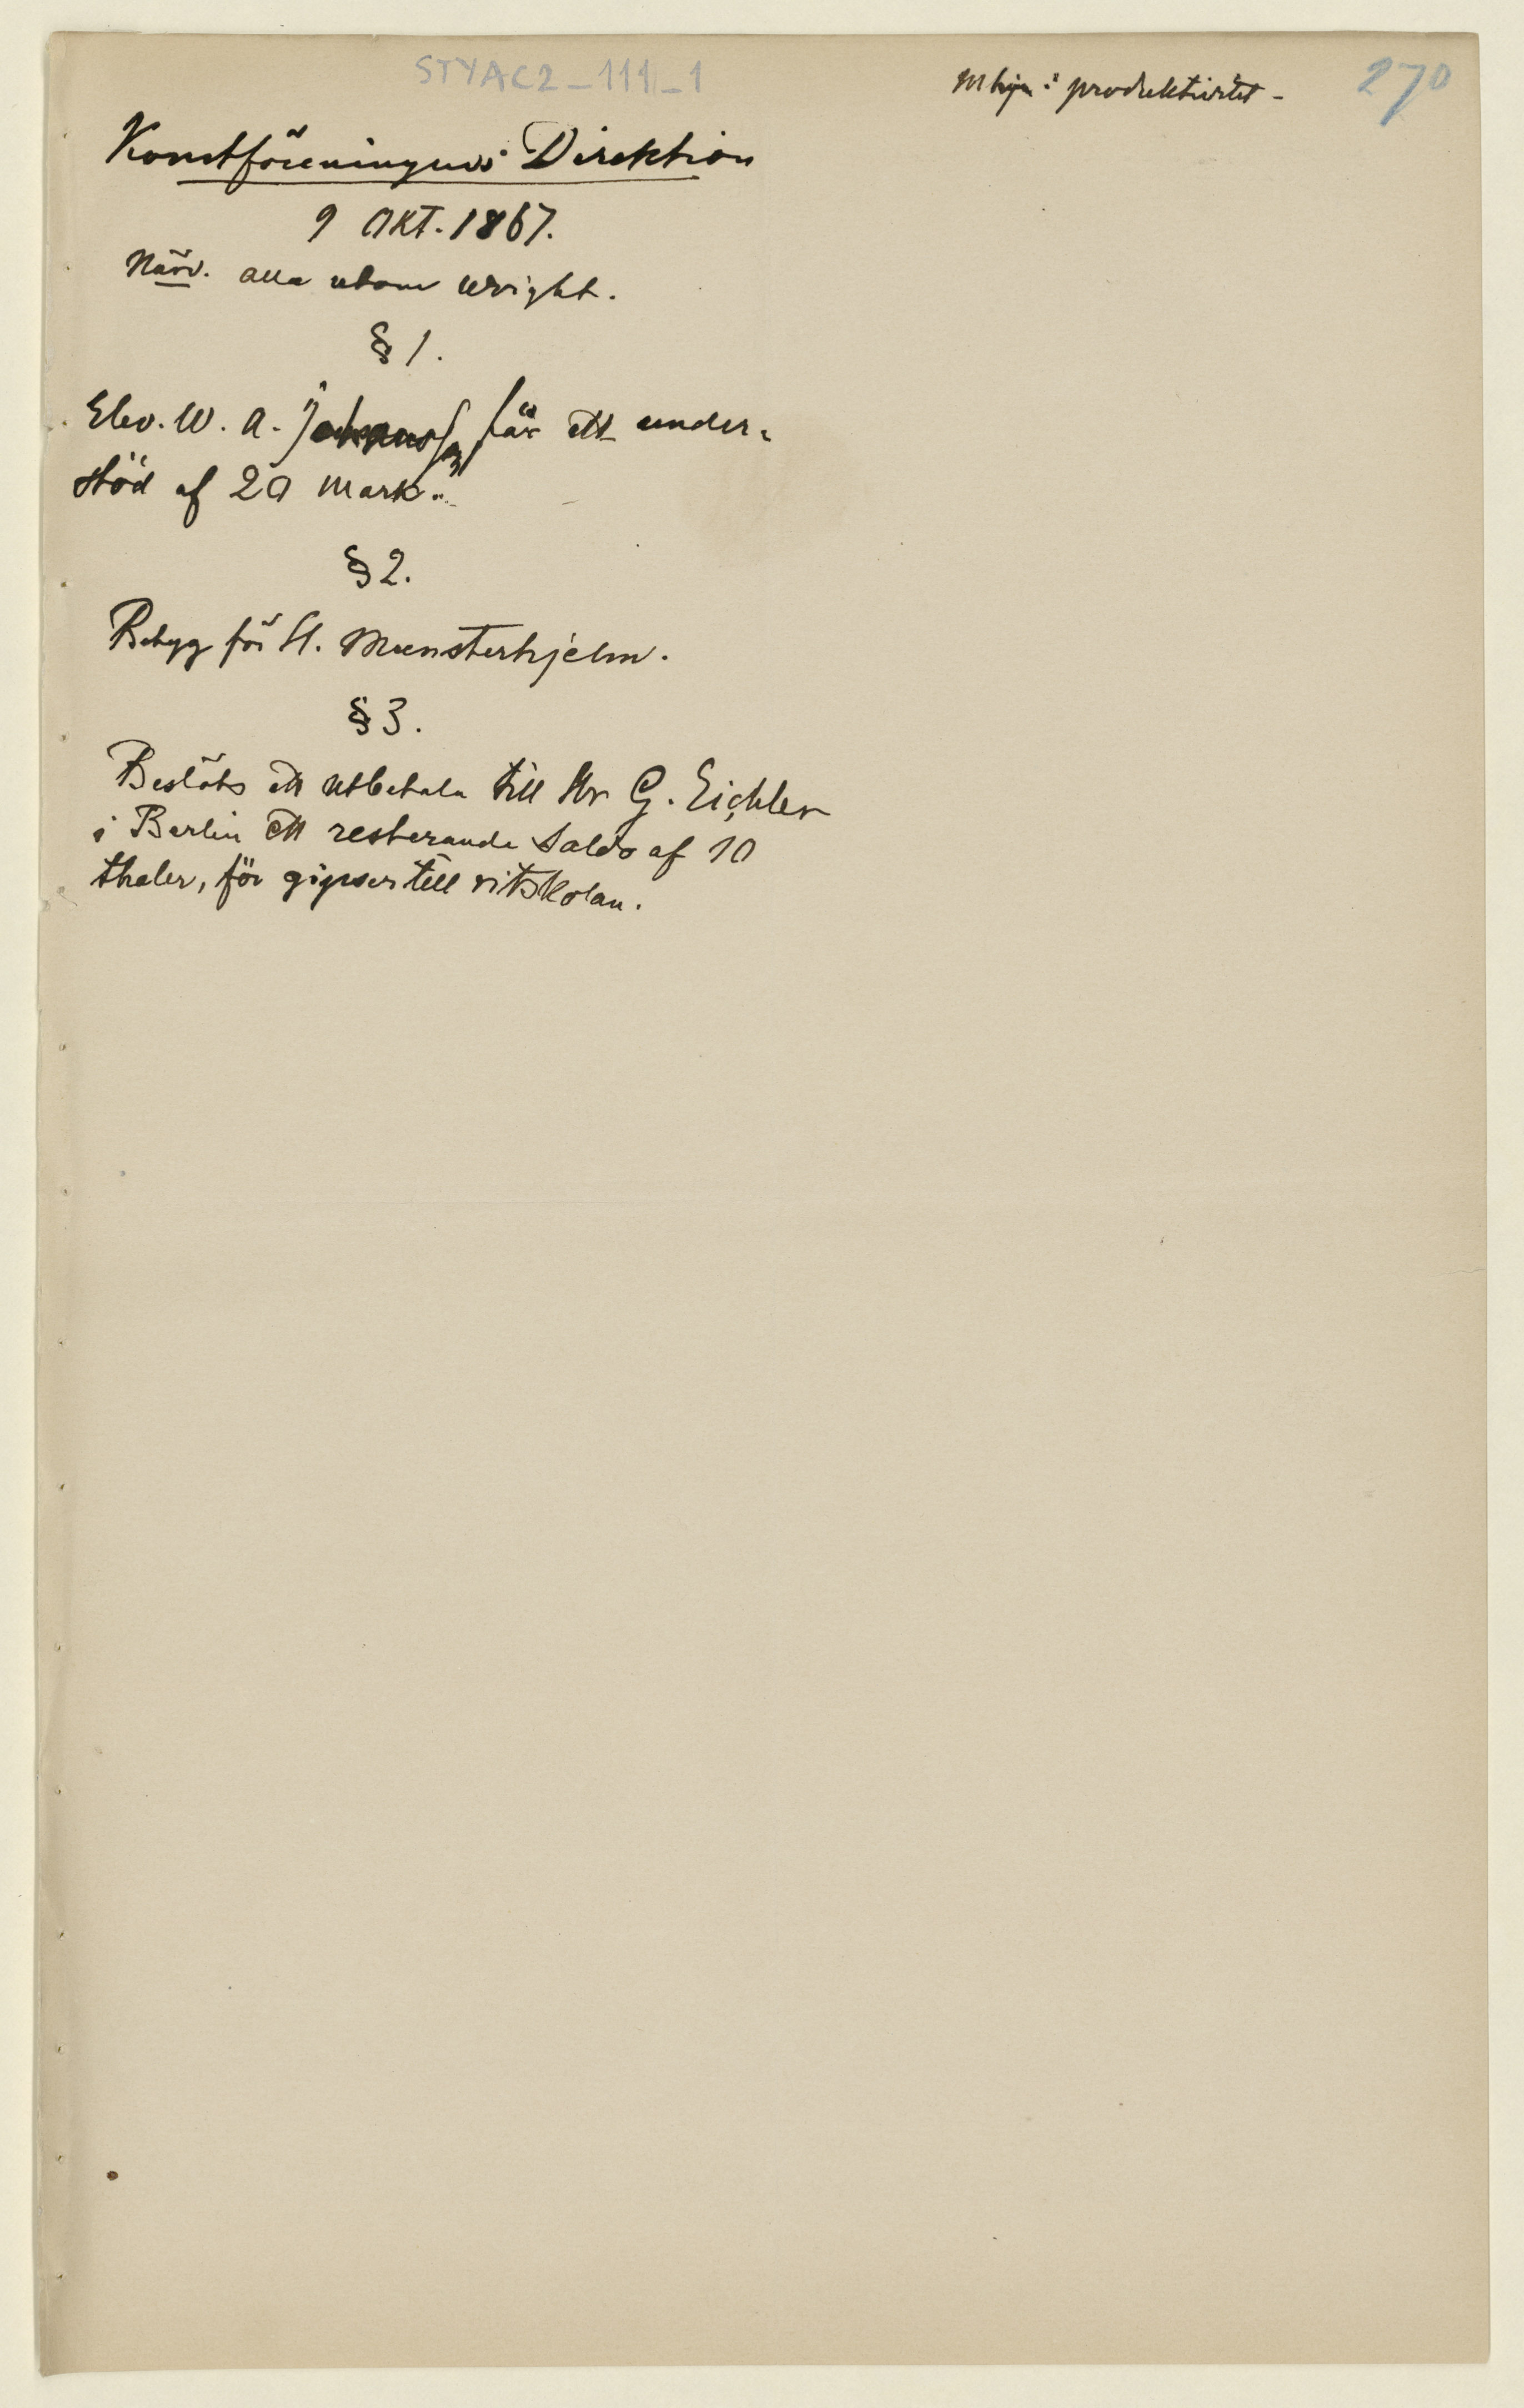 STYAC2_111_1
produktivitet - 270
Konstföreningens Direktion
9 Okt. 1867.
Närv. alla utom Wright.
§ 1.
Elev. W. A. Johansson får ett under-
stöd af 20 mark.
§ 2.
Betyg för H. Munsterhjelm.
§ 3.
Beslöts att utbetala till Hr G. Eichler
i Berlin ett resterande saldo af 10
thaler, för gipser till ritskolan.